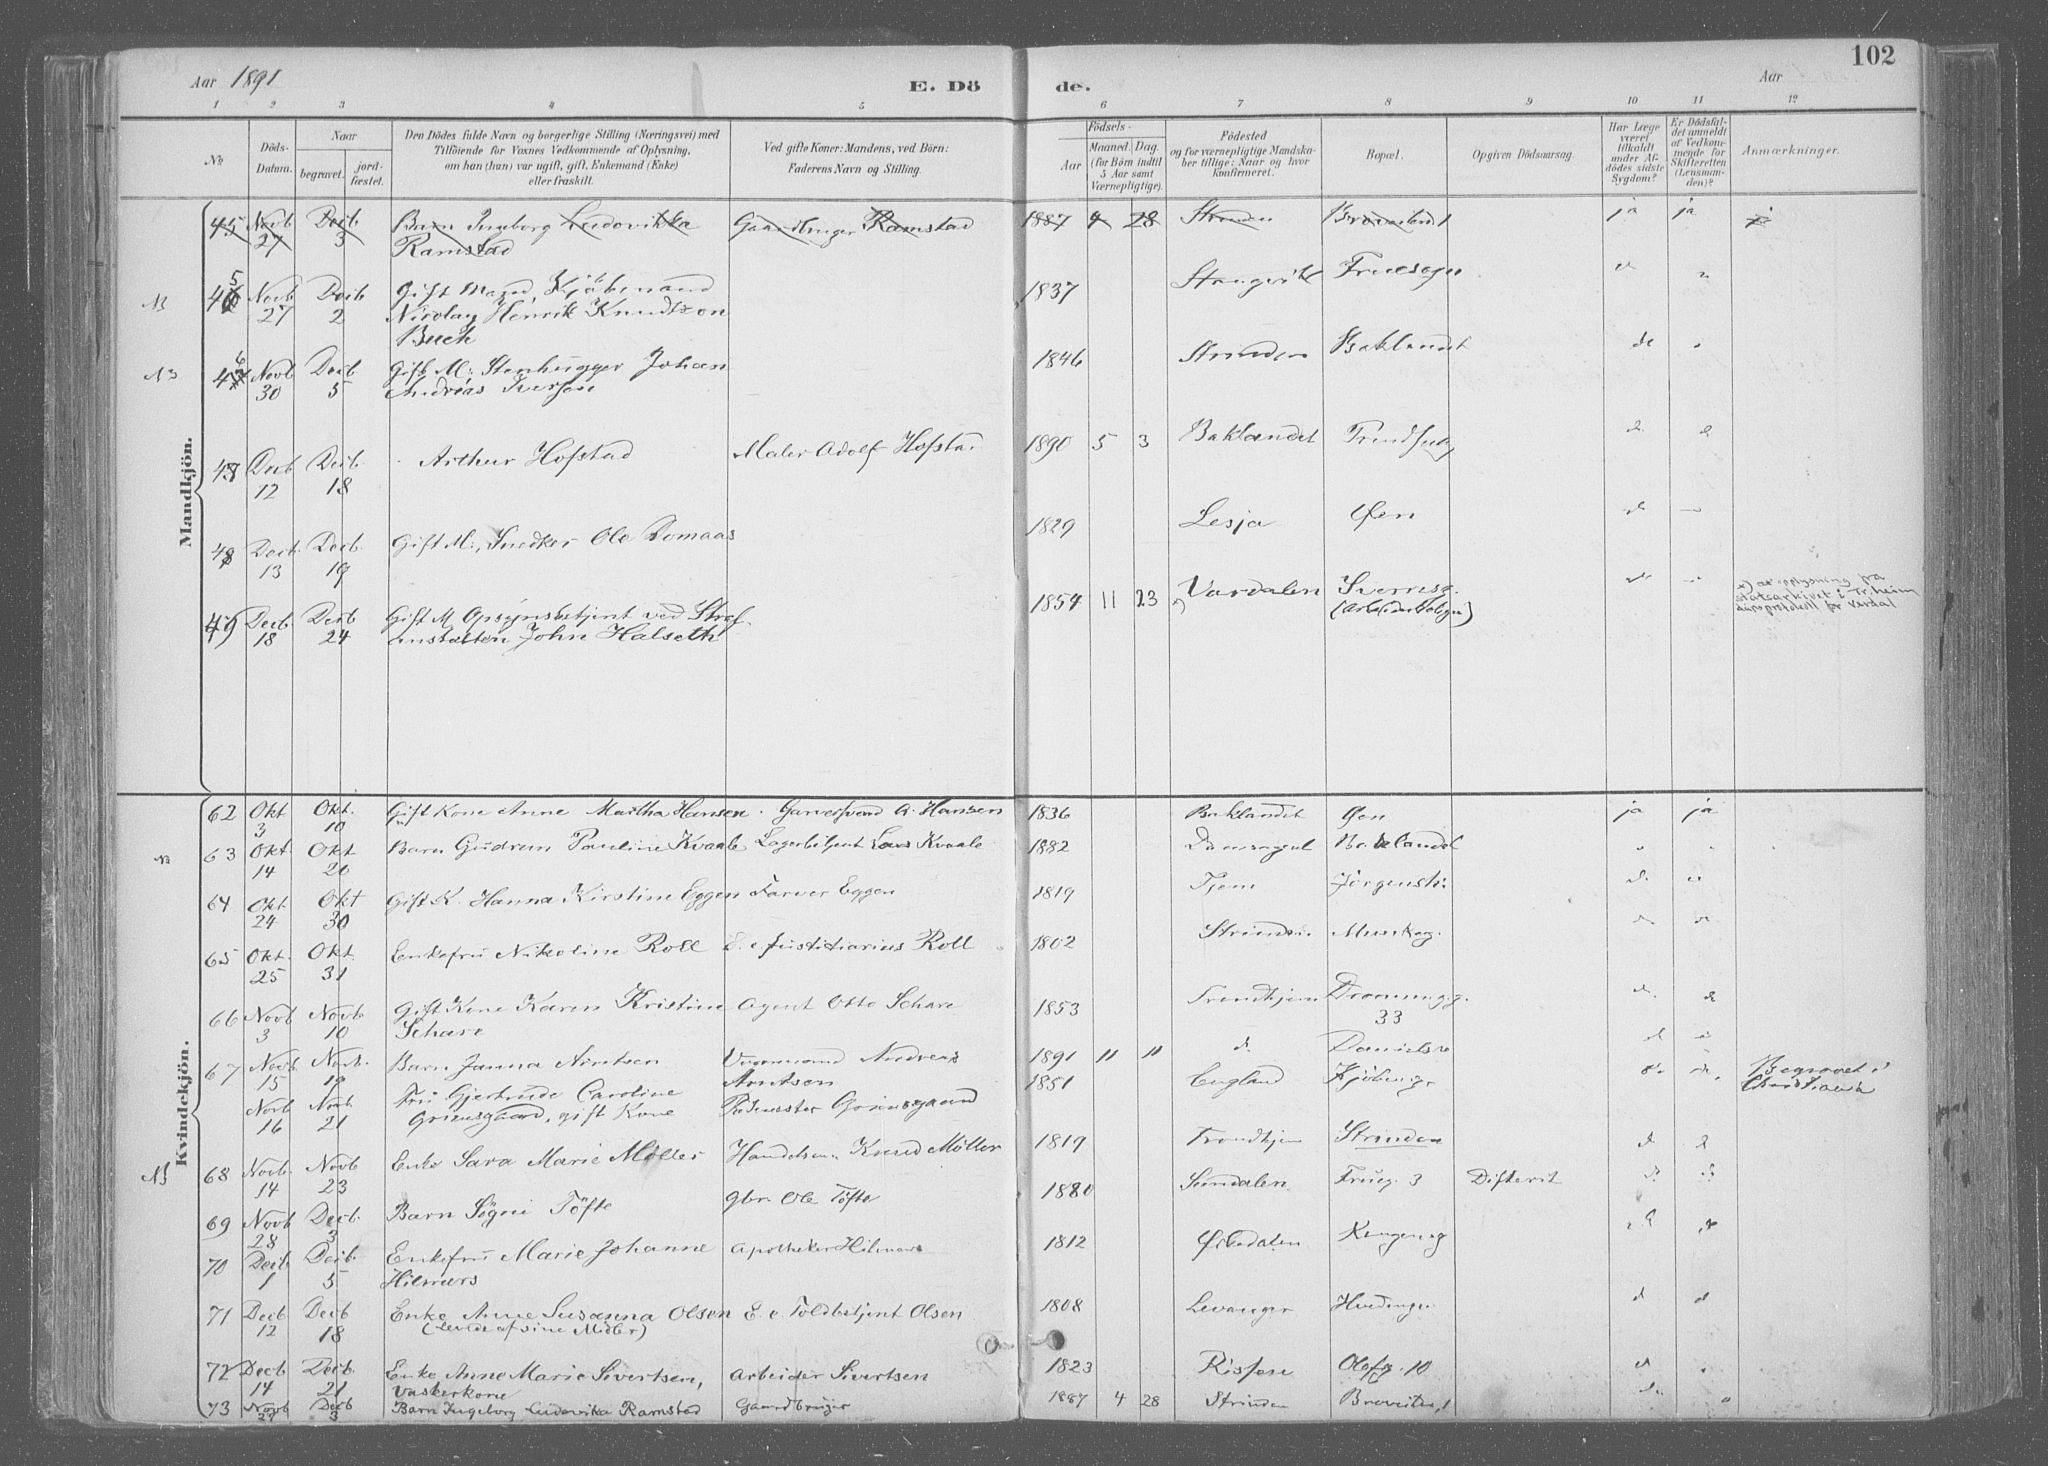 Aar 1891 E. Dö
de. Aar 102
1 2 3 4 5 6 7 8 9 10 11 12
No
Döds-Datum.
Naar
begravet.
jord-fæstet.
Den Dödes fulde Navn og borgerlige Stilling (Næringsvei) med
Tilföiende for Voxnes Vedkommende af Oplysning,
om han (hun) var ugift, gift, Enkemand (Enke)
eller fraskilt.
Ved gifte Koner: Mandens, ved Börn:
Faderens Navn og Stilling.
Födsels-
Aar
Maaned. Dag.
(for Börn indtil
5 Aar samt
Værnepligtige).
Födested
og for værnepligtige Mandska-
ber tillige: Naar og hvor
konfirmeret.
Bopæl.
Opgiven Dödsaarsag.
Har Læge
været
tilkaldt
under Af-
dödes sidste
Sygdom?
Er Dödsfal-
det anmeldt
af Vedkom-
mende for
Skifteretten
(Lensman-
den)?
Anmærkninger.
Mandkjön.
45 Novb 27 Decb 3 Barn Ingeborg Ludovikka Gaardbruger Ramstad 1887 4 28 Strinden ja ja
Ramstad
46 Novb 27 Decb 2 Gift Mand, Kjöbmand 1837 Stangvik Fruesogn
Nicolay Henrik Knudtzon
Buch
Novb 30 Decb 5 Gift M: Stenhugger Johan 1846 Strinden Baklandet
Andreas Iversen
Decb 12 Decb 18 Arthur Hofstad Maler Adolf Hofstad 1890 5 3 Baklandet
48 Decb 13 Decb 19 Gift M:, Snedker Ole Domaas 1829 Lesja Öen
49 Decb 18 Decb 24 Gift M. Opsynsbetjent ved Straf- 1854 11 23 Værdalen Sverresg.
anstalten John Halseth
oplysning på
statsarkivet i Tr.heim
for Verdal
Kvindekjön.
62 Okt 3 Okt. 10 Gift Kone Anne Martha Hansen Garversvend A. Hansen 1836 Baklandet Öen ja ja
63 Okt. 14 Okt 20 Barn Gudrun Pauline Kvaale Lagerbetjent Lars Kvaale 1882 Baklandet
64 Okt. 24 Okt 30 Gift K. Hanna Kirstine Eggen Farver Eggen 1819
65 Okt. 25 Okt. 31 Enkefru Nikoline Roll E. e. Justitiarius Roll 1802 Strinden Munkeg.
66 Novb 3 Novb. 10 Gift Kone Karen Kristine Agent Otto Schare 1853 Trondhjem Dronning.g. 33
Schare
67 Novb 15 Novb. 19 Barn Janna Arntsen Vognmand Andreas 1891 11 11 d.
Arntsen
Novb 16 Novb 21 Fru Gjertrude Caroline 1851 England Begravet i
Grimsgaard, gift Kone Grimsgaard Christiania
68 Novb. 14 Novb 23 Enke Sara Marie Möller Handelsm. Knud Möller 1819 Trondhjem Strinden
69 Novb 28 Decb. 3 Barn Sögni Töfte gbr. Ole Töfte 1880 Sundalen Frueg. 3 Difterit
70 Decb. 1 Decb. 5 Enkefru Marie Johanne Apotheker Hilmers 1812 Kongensg
Hilmers
71 Decb 12 Decb 18 Enke Anne Susanna Olsen E. e. Toldbetjent Olsen 1808 Levanger
(levede af sine Midler)
72 Decb 14 Decb. 21 Enke Anne Marie Sivertsen, Arbeider Sivertsen 1823 Rissen Olafg. 10
Vaskerkone
73 Novb 27 Decb 3 Barn Ingeborg Ludovika Ramstad Gaardbruger 1887 4 28 Strinden